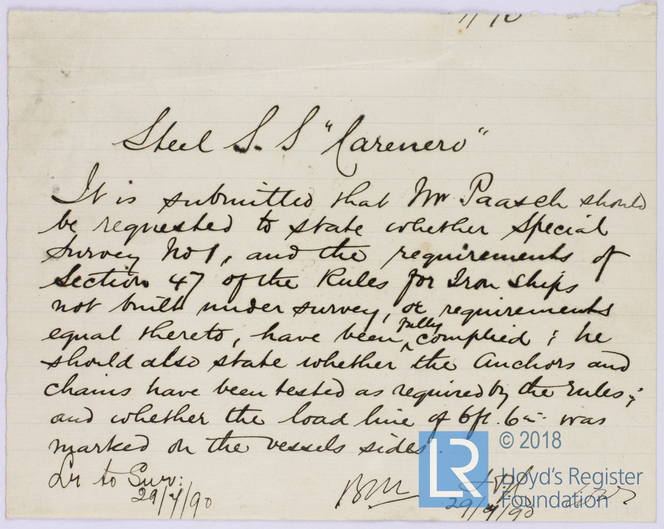 Steel S.S "Carenero"
It is submitted that Mr Paasch should
be requested to state whether Special
Survey No 1, and the requirements of
Section 47 of the Rules for Iron Ships
not built under survey, or requirements
equal thereto, have been fully complied; he
should also state whether the Anchors and
chains have been tested as required by the rules;
and whether the load line of 6ft. 6in was
marked on the vessels sides.
Lr to Surv:
29/7/90
BM
29/7/90
LR
© 2018
Lloyd's Register
Foundation